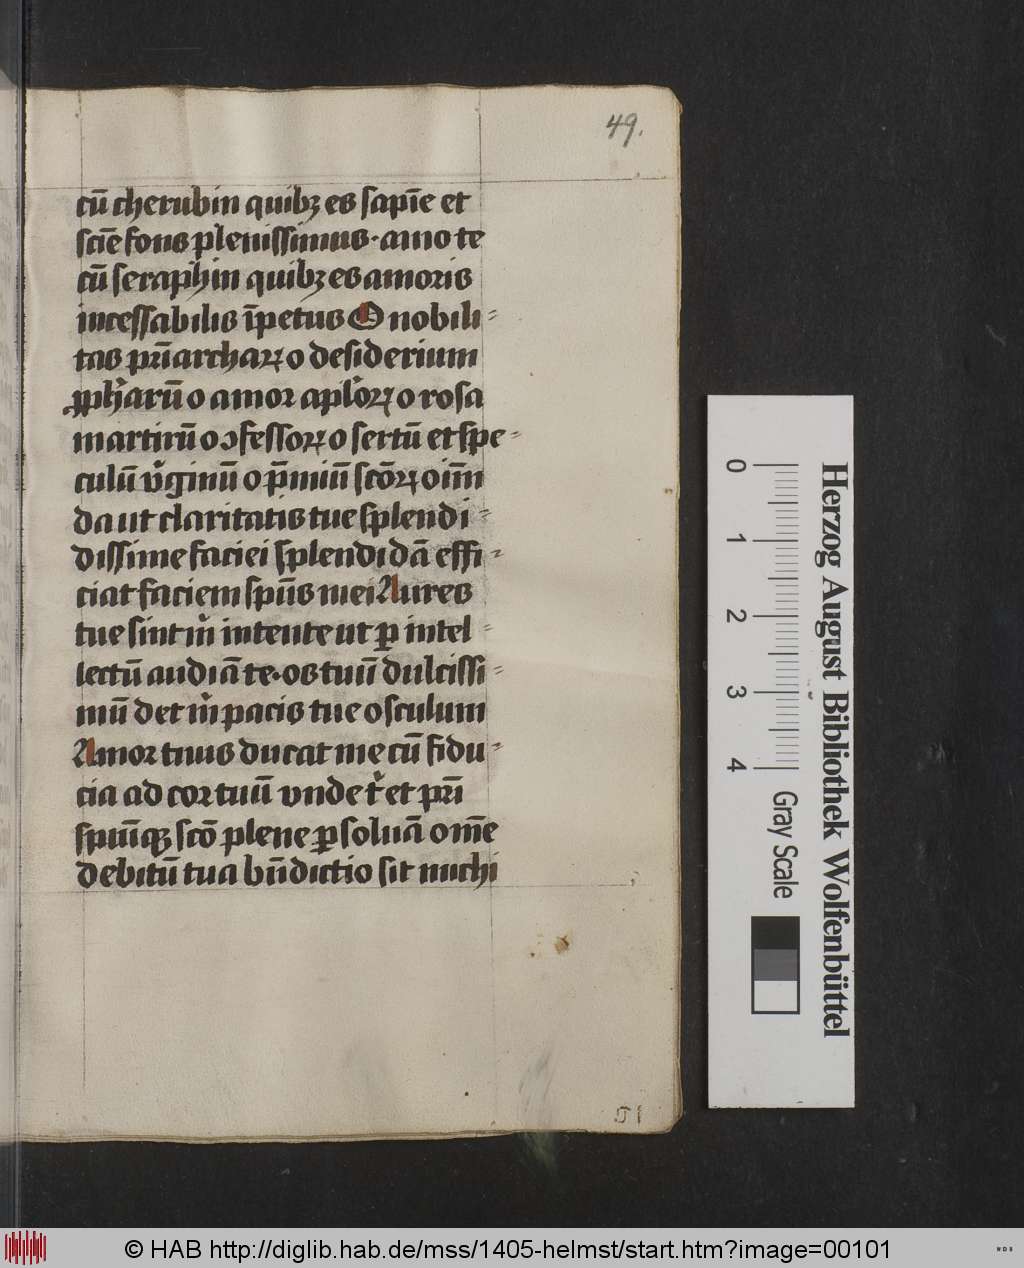 49.
cū cherubin quibꝫ es sapīe et
scīe fons plenissimus · amo te
cū seraphin quibꝫ es amoris
incessabilis īpetus O nobili-
tas pr̄iarcharꝝ o desiderium
ꝓph̓arū o amor apl̓orꝝ o rosa
martirū o ↄfessorꝝ o sertū et spe-
culū v̓ginū o p̄miū scōrꝝ oīm̄
da ut claritatis tue splendi-
dissime faciei splendidā effi-
ciat faciem spūs mei Aures
tue sint m̓ intente ut ꝑ intel-
lectū audiā te · os tuū dulcissi-
mū det m̓ pacis tue osculum
Amor tuus ducat me cū fidu-
cia ad cor tuū vnde t̓ et pr̄i
spūiqꝫ scō plene ꝑsoluā om̄e
debitū tua bn̄dictio sit michi
51
Herzog August Bibliothek Wolfenbüttel
0 1 2 3 4 Gray Scale
© HAB http://diglib.hab.de/mss/1405-helmst/start.htm?image=00101